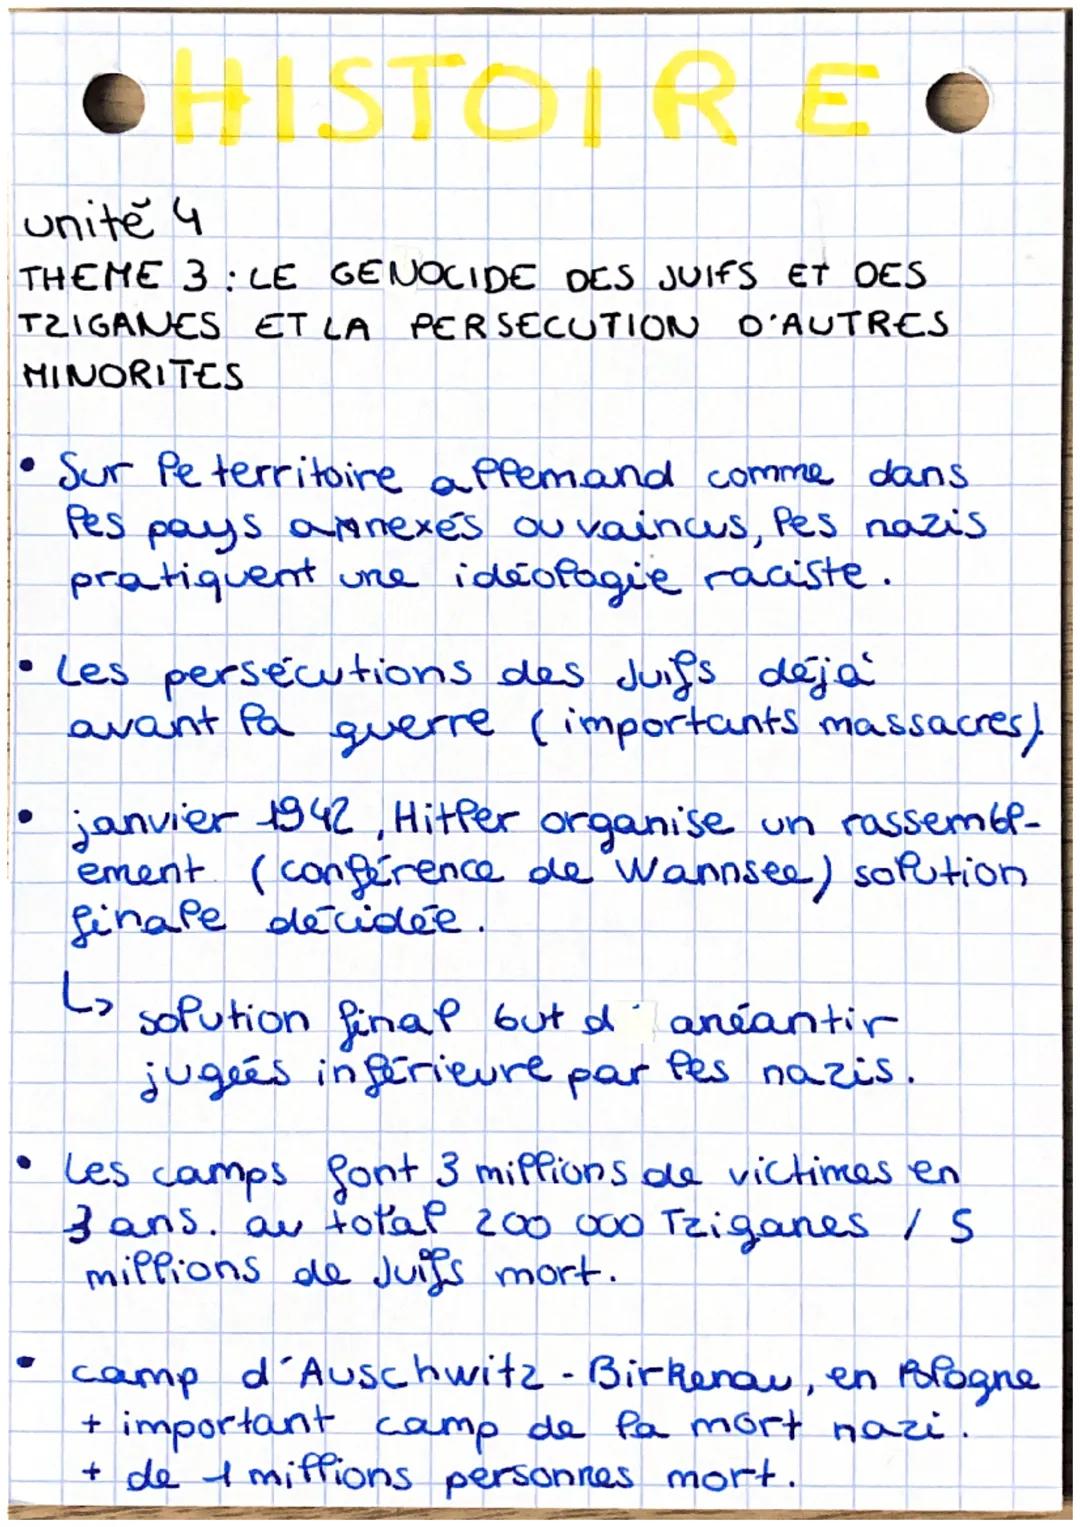 HISTOIRE
unité 4
THEME 3 : LE GENOCIDE DES JUIFS ET DES
TZIGANES ET LA PERSECUTION D'AUTRES
MINORITES
• Sur le territoire allemand comme dans
les pays annexés ou vaincus, les nazis
pratiquent une idéologie raciste.
• Les persécutions des Juifs déjà
avant la guerre (importants massacres).
• janvier 1942, Hitler organise un rassembl-
ement (conférence de Wannsee) solution
finale décidée.
↳ solution final but d'anéantir
jugées inférieure par les nazis.
• Les camps font 3 millions de victimes en
3 ans. au total 200 000 Tziganes / 5
millions de Juifs mort.
• camp d'Auschwitz-Birkenau, en Pologne
+ important camp de la mort nazi.
+ de 1 millions personnes mort.